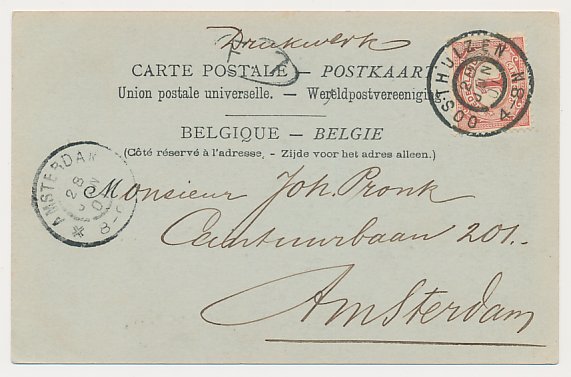 Drukwerk
CARTE POSTALE — POSTKAART
Union postale universelle. — Wereldpostvereeniging
BELGIQUE — BELGIE
(Côté réservé à l'adresse. - Zijde voor het adres alleen.)
OOSTHUIZEN
4-8N
28
JUN
1
AMSTERDAM
28
Monsieur Joh. Pronk
Ceintuurbaan 201.
Amsterdam